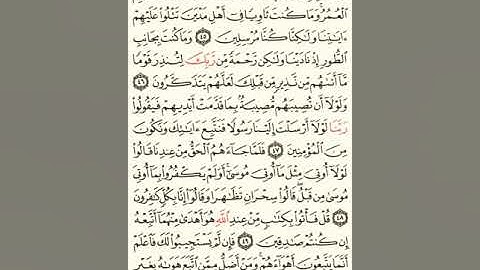 ٱلْعُمُرُ وَمَا كُنتَ ثَاوِيًا فِىٓ أَهْلِ مَدْيَنَ تَتْلُوا۟ عَلَيْهِمْ
ءَايَـٰتِنَا وَلَـٰكِنَّا كُنَّا مُرْسِلِينَ ٤٥ وَمَا كُنتَ بِجَانِبِ
ٱلطُّورِ إِذْ نَادَيْنَا وَلَـٰكِن رَّحْمَةً مِّن رَّبِّكَ لِتُنذِرَ قَوْمًا
مَّآ أَتَىٰهُم مِّن نَّذِيرٍ مِّن قَبْلِكَ لَعَلَّهُمْ يَتَذَكَّرُونَ ٤٦
وَلَوْلَآ أَن تُصِيبَهُم مُّصِيبَةٌۢ بِمَا قَدَّمَتْ أَيْدِيهِمْ فَيَقُولُوا۟
رَبَّنَا لَوْلَآ أَرْسَلْتَ إِلَيْنَا رَسُولًا فَنَتَّبِعَ ءَايَـٰتِكَ وَنَكُونَ
مِنَ ٱلْمُؤْمِنِينَ ٤٧ فَلَمَّا جَآءَهُمُ ٱلْحَقُّ مِنْ عِندِنَا قَالُوا۟
لَوْلَآ أُوتِىَ مِثْلَ مَآ أُوتِىَ مُوسَىٰٓ أَوَلَمْ يَكْفُرُوا۟ بِمَآ أُوتِىَ
مُوسَىٰ مِن قَبْلُ قَالُوا۟ سِحْرَانِ تَظَـٰهَرَا وَقَالُوٓا۟ إِنَّا بِكُلٍّ كَـٰفِرُونَ
٤٨ قُلْ فَأْتُوا۟ بِكِتَـٰبٍ مِّنْ عِندِ ٱللَّهِ هُوَ أَهْدَىٰ مِنْهُمَآ أَتَّبِعْهُ
إِن كُنتُمْ صَـٰدِقِينَ ٤٩ فَإِن لَّمْ يَسْتَجِيبُوا۟ لَكَ فَٱعْلَمْ
أَنَّمَا يَتَّبِعُونَ أَهْوَآءَهُمْ وَمَنْ أَضَلُّ مِمَّنِ ٱتَّبَعَ هَوَىٰهُ بِغَيْرِ